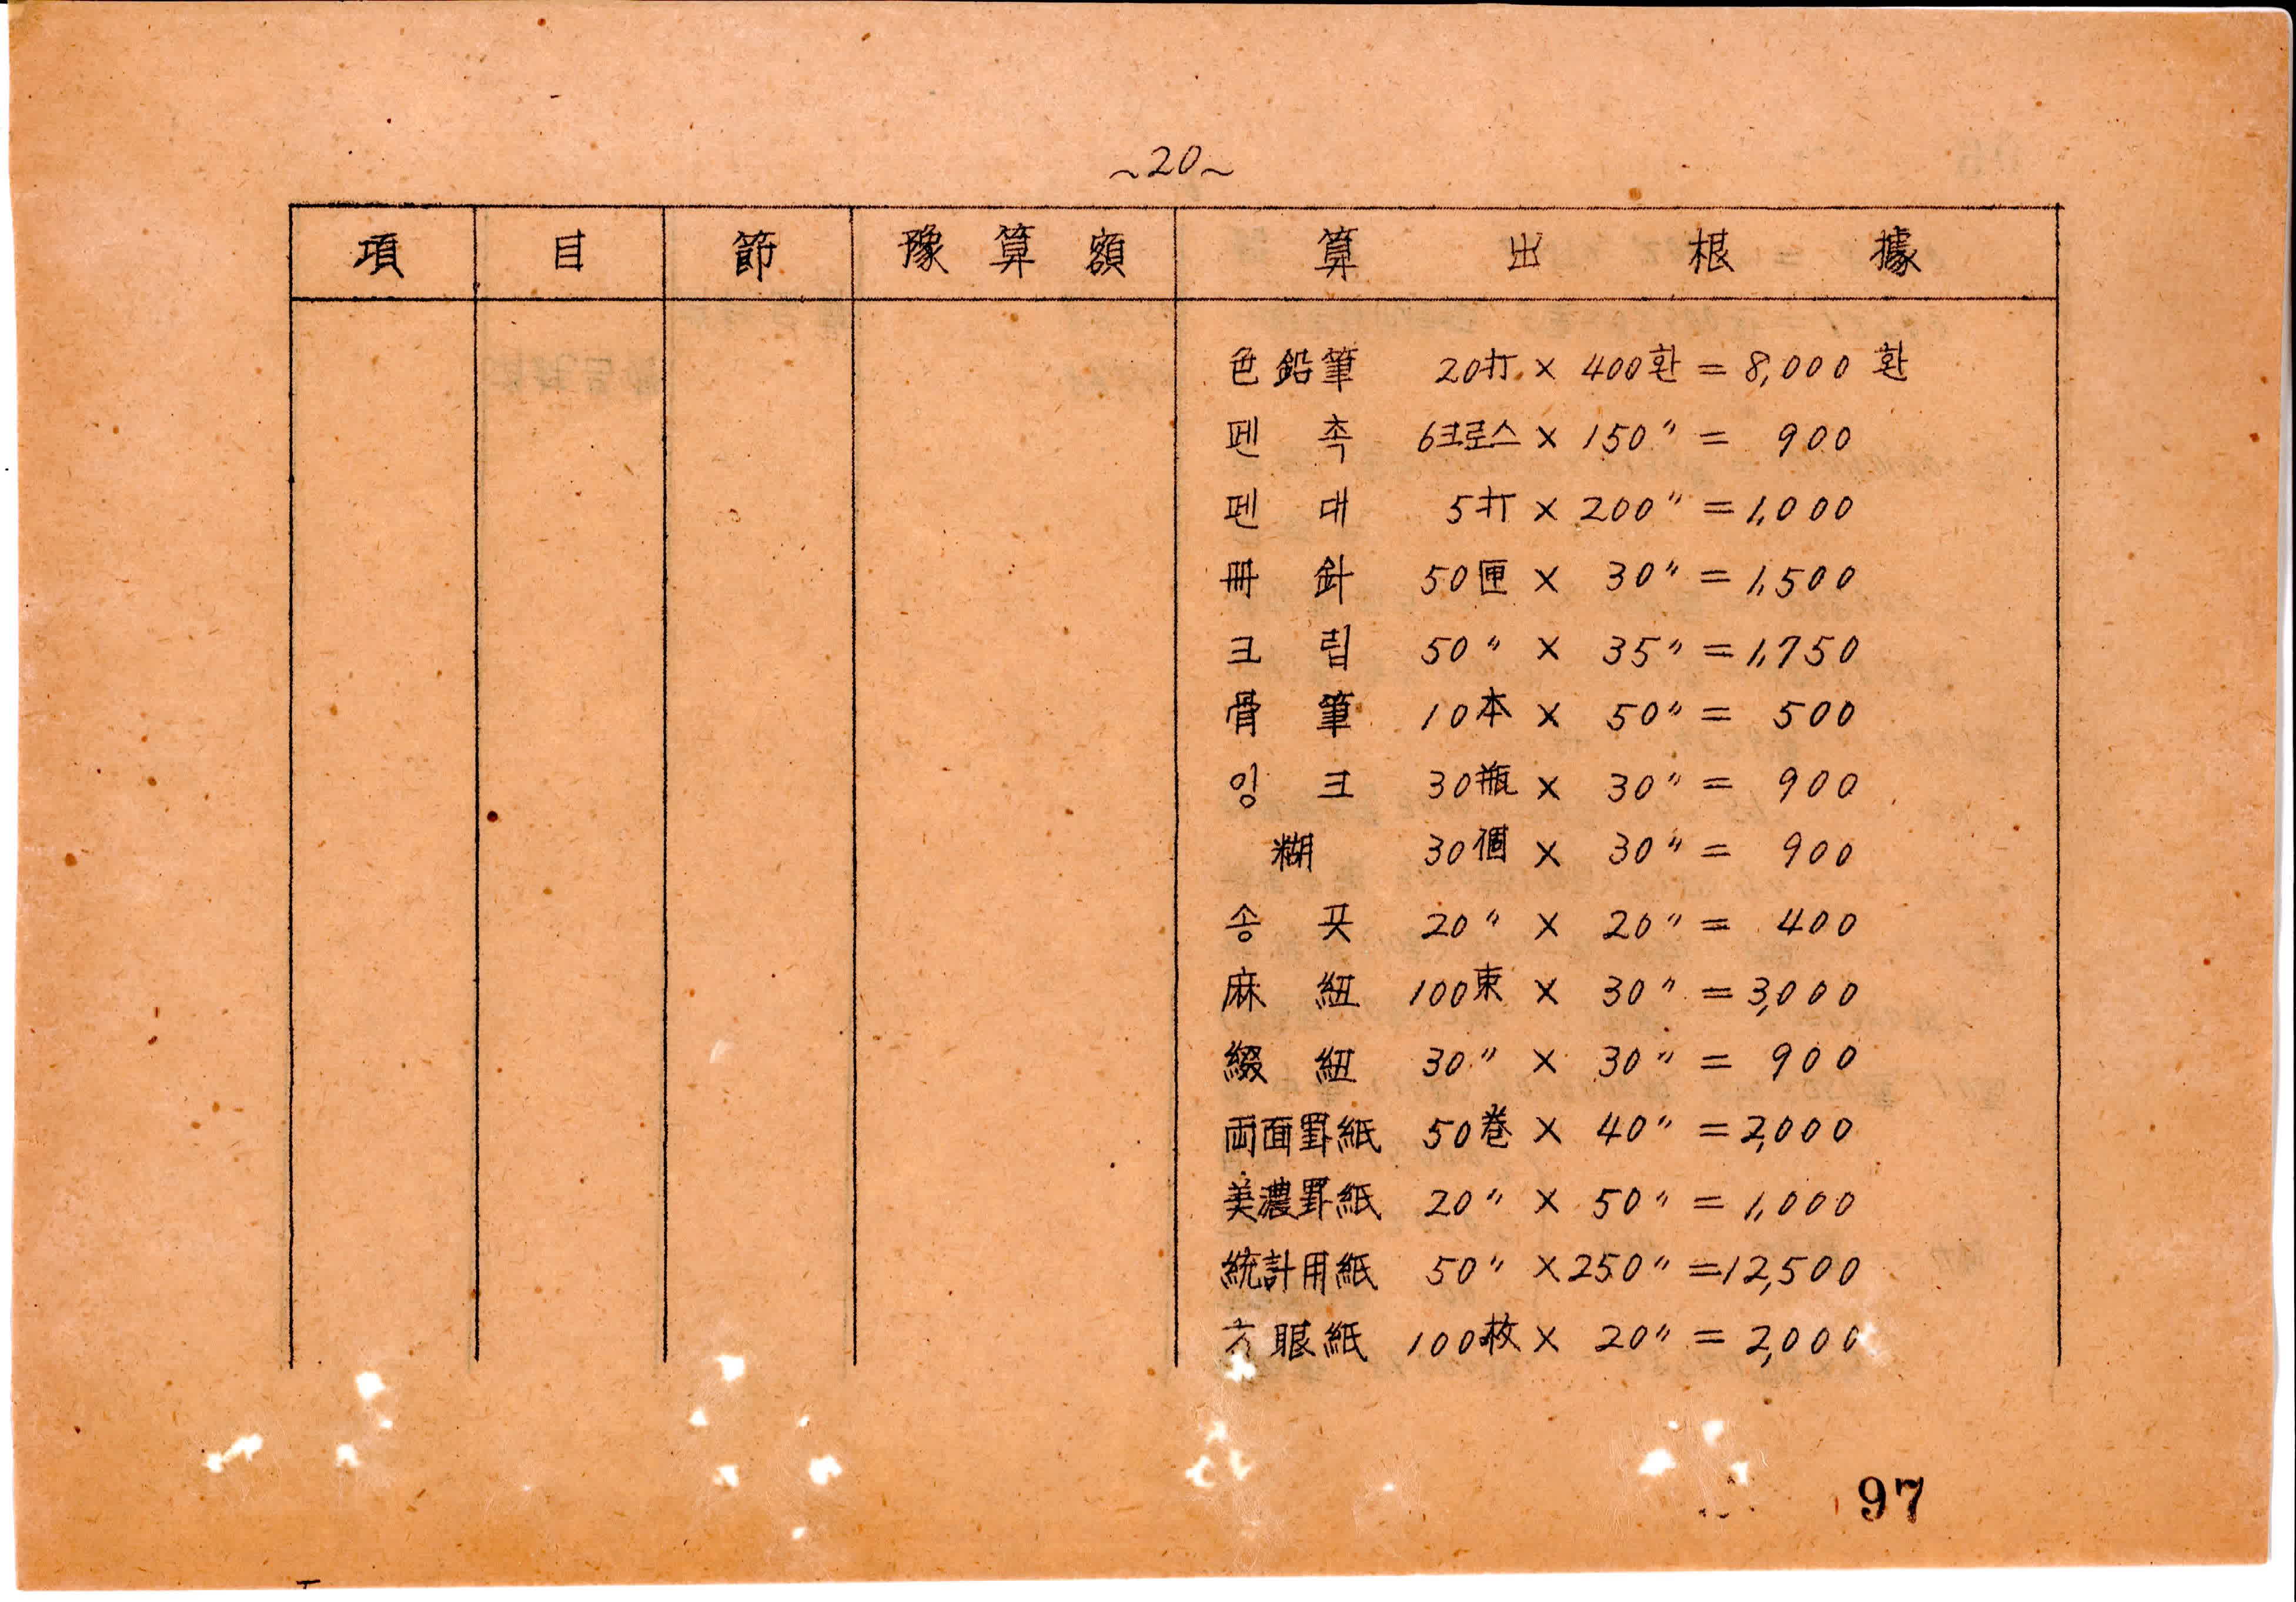 ~20~
項 目 節 豫算額 算出根據
色鉛筆 20打 × 400환 = 8,000환
펜촉 6크로스 × 150〃 = 900
펜대 5打 × 200〃 = 1,000
冊針 50匣 × 30〃 = 1,500
크립 50〃 × 35〃 = 1,750
骨筆 10本 × 50〃 = 500
잉크 30瓶 × 30〃 = 900
糊 30個 × 30〃 = 900
송곳 20〃 × 20〃 = 400
麻紐 100束 × 30〃 = 3,000
綴紐 30〃 × 30〃 = 900
両面罫紙 50巻 × 40〃 = 2,000
美濃罫紙 20〃 × 50〃 = 1,000
統計用紙 50〃 × 250〃 = 12,500
方眼紙 100枚 × 20〃 = 2,000
97